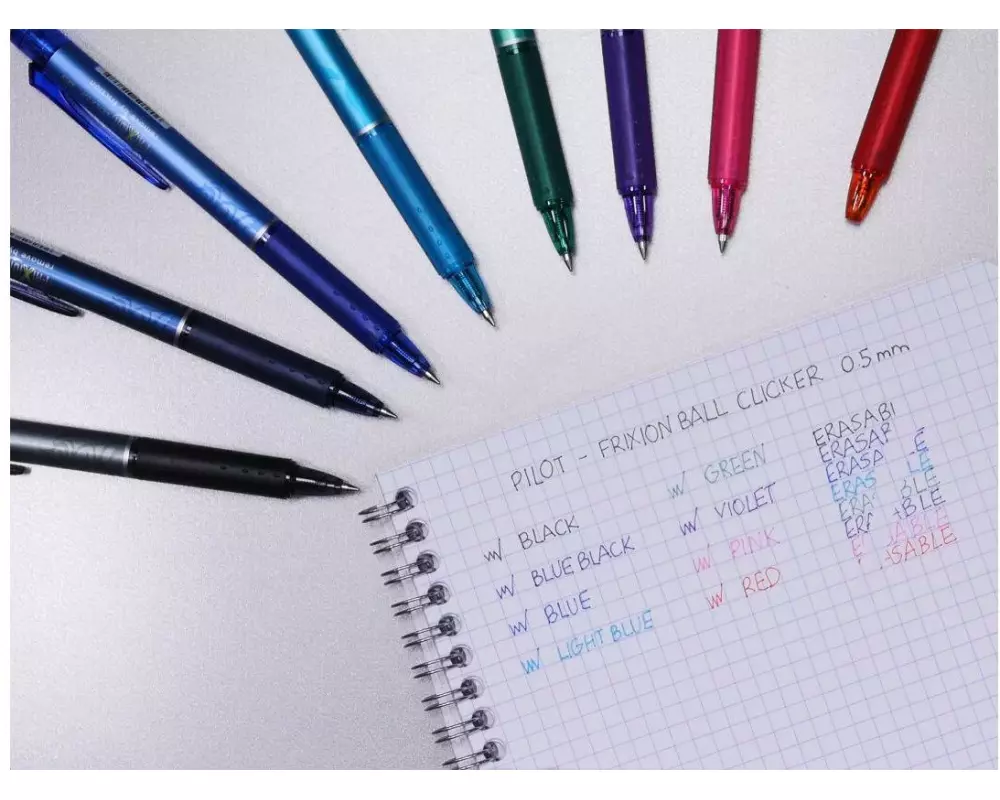 PILOT - FRIXION BALL CLICKER 0.5mm
BLACK
BLUE BLACK
BLUE
LIGHT BLUE
GREEN
VIOLET
PINK
RED
ERASABL
ERASAB
ERASA LE
ERAS LE
ERA BLE
ER ABLE
E SABLE
SABLE